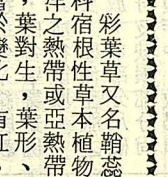 彩葉草又名鞘蕊
科宿根性草本植物
洋之熱帶或亞熱帶
，葉對生，葉形、